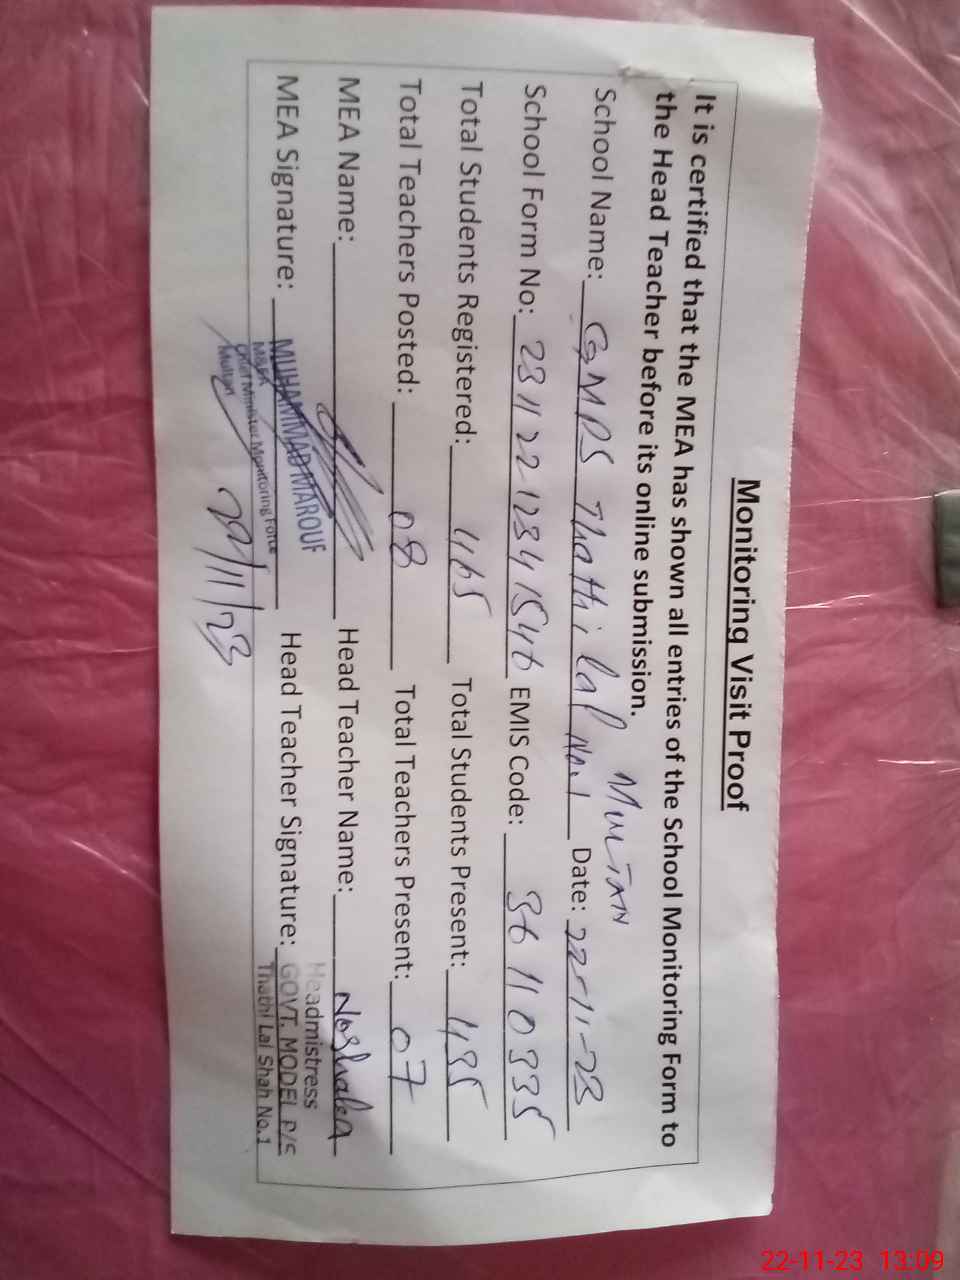 Monitoring Visit Proof
It is certified that the MEA has shown all entries of the School Monitoring Form to
the Head Teacher before its online submission.
MULTAN
School Name: GMPS Thathi Lal No.1 Date: 22-11-23
School Form No: 23112212341546 EMIS Code: 36110335
Total Students Registered: 465 Total Students Present: 435
Total Teachers Posted: 08 Total Teachers Present: 07
MEA Name: Head Teacher Name:
MEA Signature: MUHAMMAD MAROUF Head Teacher Signature:
M&EA
Chief Minister Monitoring Force
Multan
22/11/23
Headmistress
GOVT. MODEL P/S
Thathi Lal Shah No.1
22-11-23 13:09